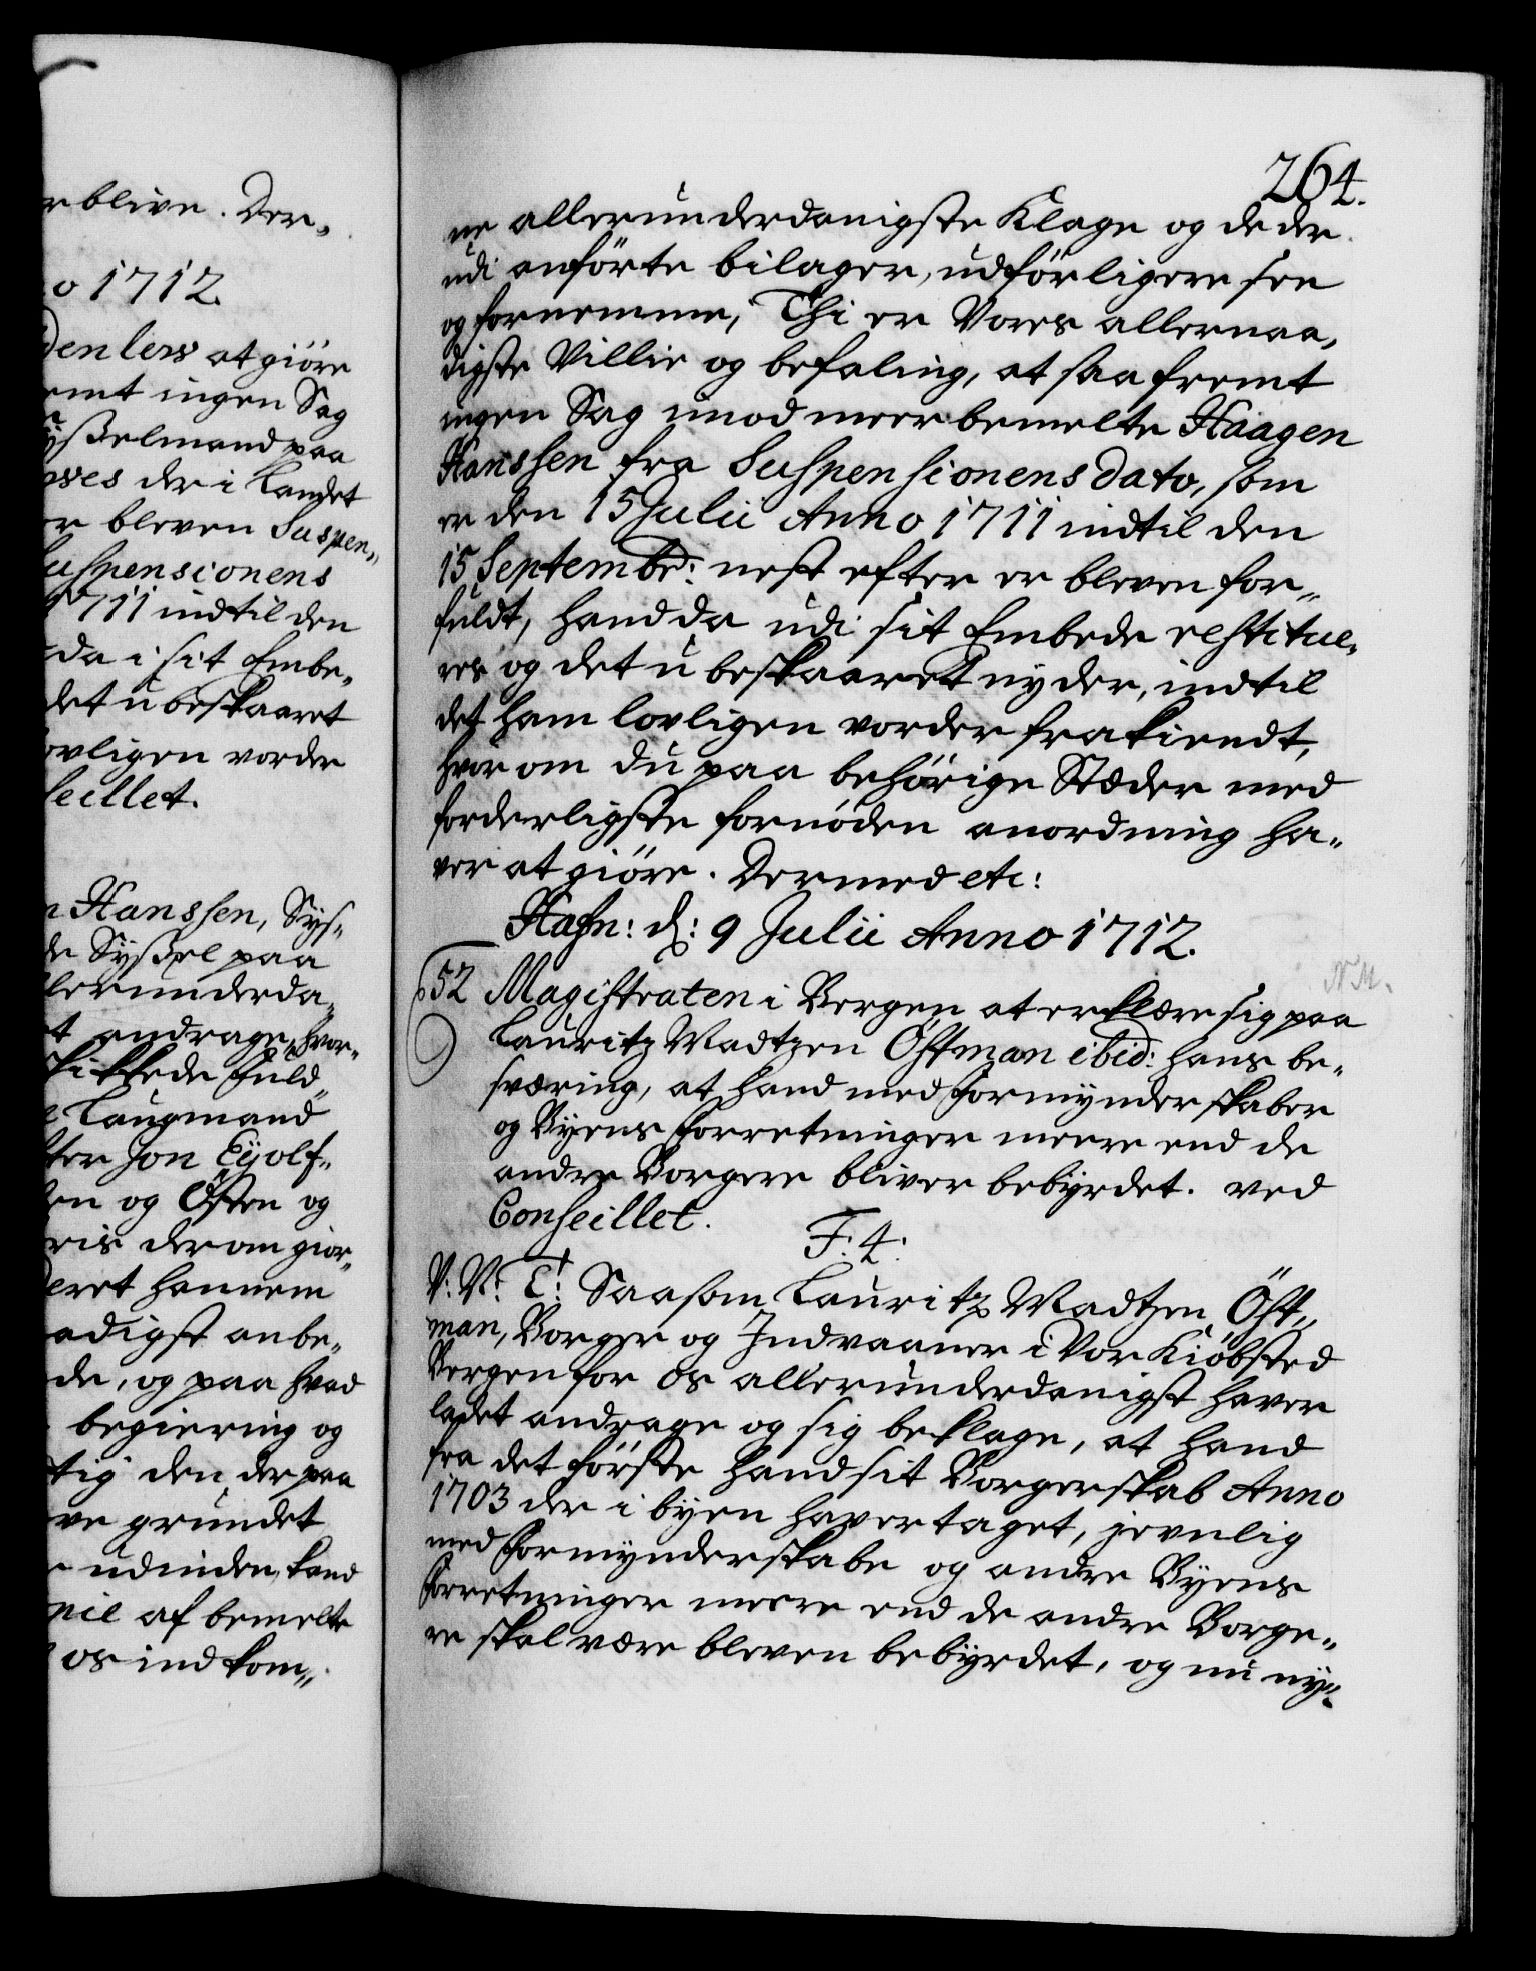 r blive. Der„
o 1712.
Denlew at giöre
emt ingen Sag
Syßelmand paa
oses der i Landet
er bleven Suspen„
Suspensionens
1711 indtil den
da i sit Embe„
det ubeskaaret
ovligen vorder
seillet.
n Hanssen, Sys„
de Syßel paa
llerunderda„
t andrage, hvor„
skikkede Fuld„
e Laugmand
ter Jon Eÿolf„
en og Östen og
ris derom gior„
deret hannem
adigst anbe„
de, og paa hvad
begiering og
tig den der paa
ve grundet
r udinden kand
pie af bemelte
os indkom„
264.
ne allerunderdanigste Klage og de der
udi anförte bilager, udförligere see
og fornemme, Thi er Vores allernaa„
digste Villie og befaling, at saafremt
ingen Sag imod meerbemelte Haagen
Hanssen fra Suspensionens dato, som
er den 15 Julii Anno 1711 indtil den
15 Septembr: nest efter er bleven for„
fuldt, hand da udi sit Embede restitue„
res og det ubeskaaret nyder, indtil
det ham lovligen vorder frakiendt,
hvorom du paa behörige Stæder med
forderligste fornöden anordning ha„
ver at giöre. Dermed etc:
Hafn: d: 9 Julii Anno 1712.
52 Magistraten i Bergen at erklære sig paa
N M.
Lauritz Madtzen Östman ibid: hans be„
sværing, at hand med Formynderskaber
og Byens Forretninger meere end de
andre Borgere bliver bebyrdet. ved
Conseillet.
F: 4:
V: V: T: Saasom Lauritz Madtzen Öst„
man, Borger og Indvaaner i Vor Kiöbsted
Bergen for os allerunderdanigst haver
ladet andrage og sig beklage, at hand
fra det förste hand sit Borgerskab Anno
1703 der i byen haver taget, jevnlig
med Formynderskabe og andre Byens
Forretninger meere end de andre Borge„
re skal være bleven bebyrdet, og nu ny„